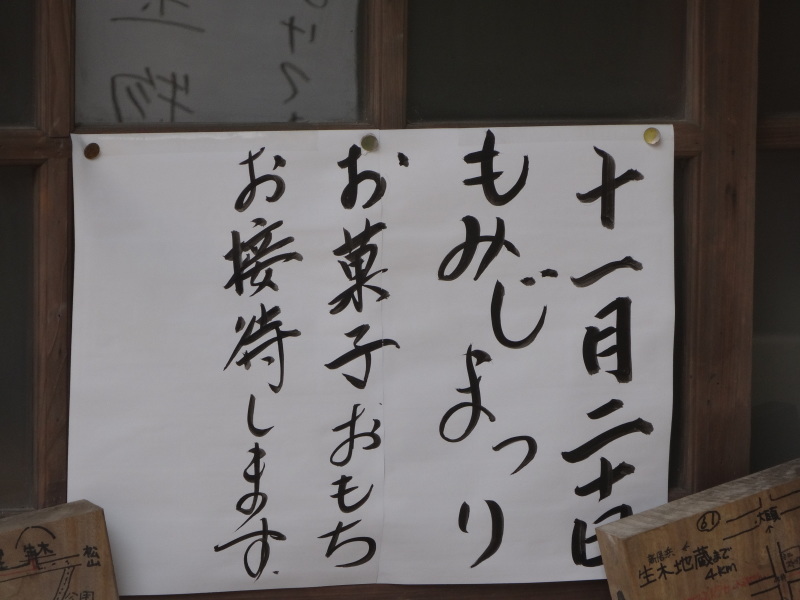 十一月二十日
もみじまつり
お菓子おもち
お接待します
物
生木
松山
公園
61
生木地蔵まで
4km